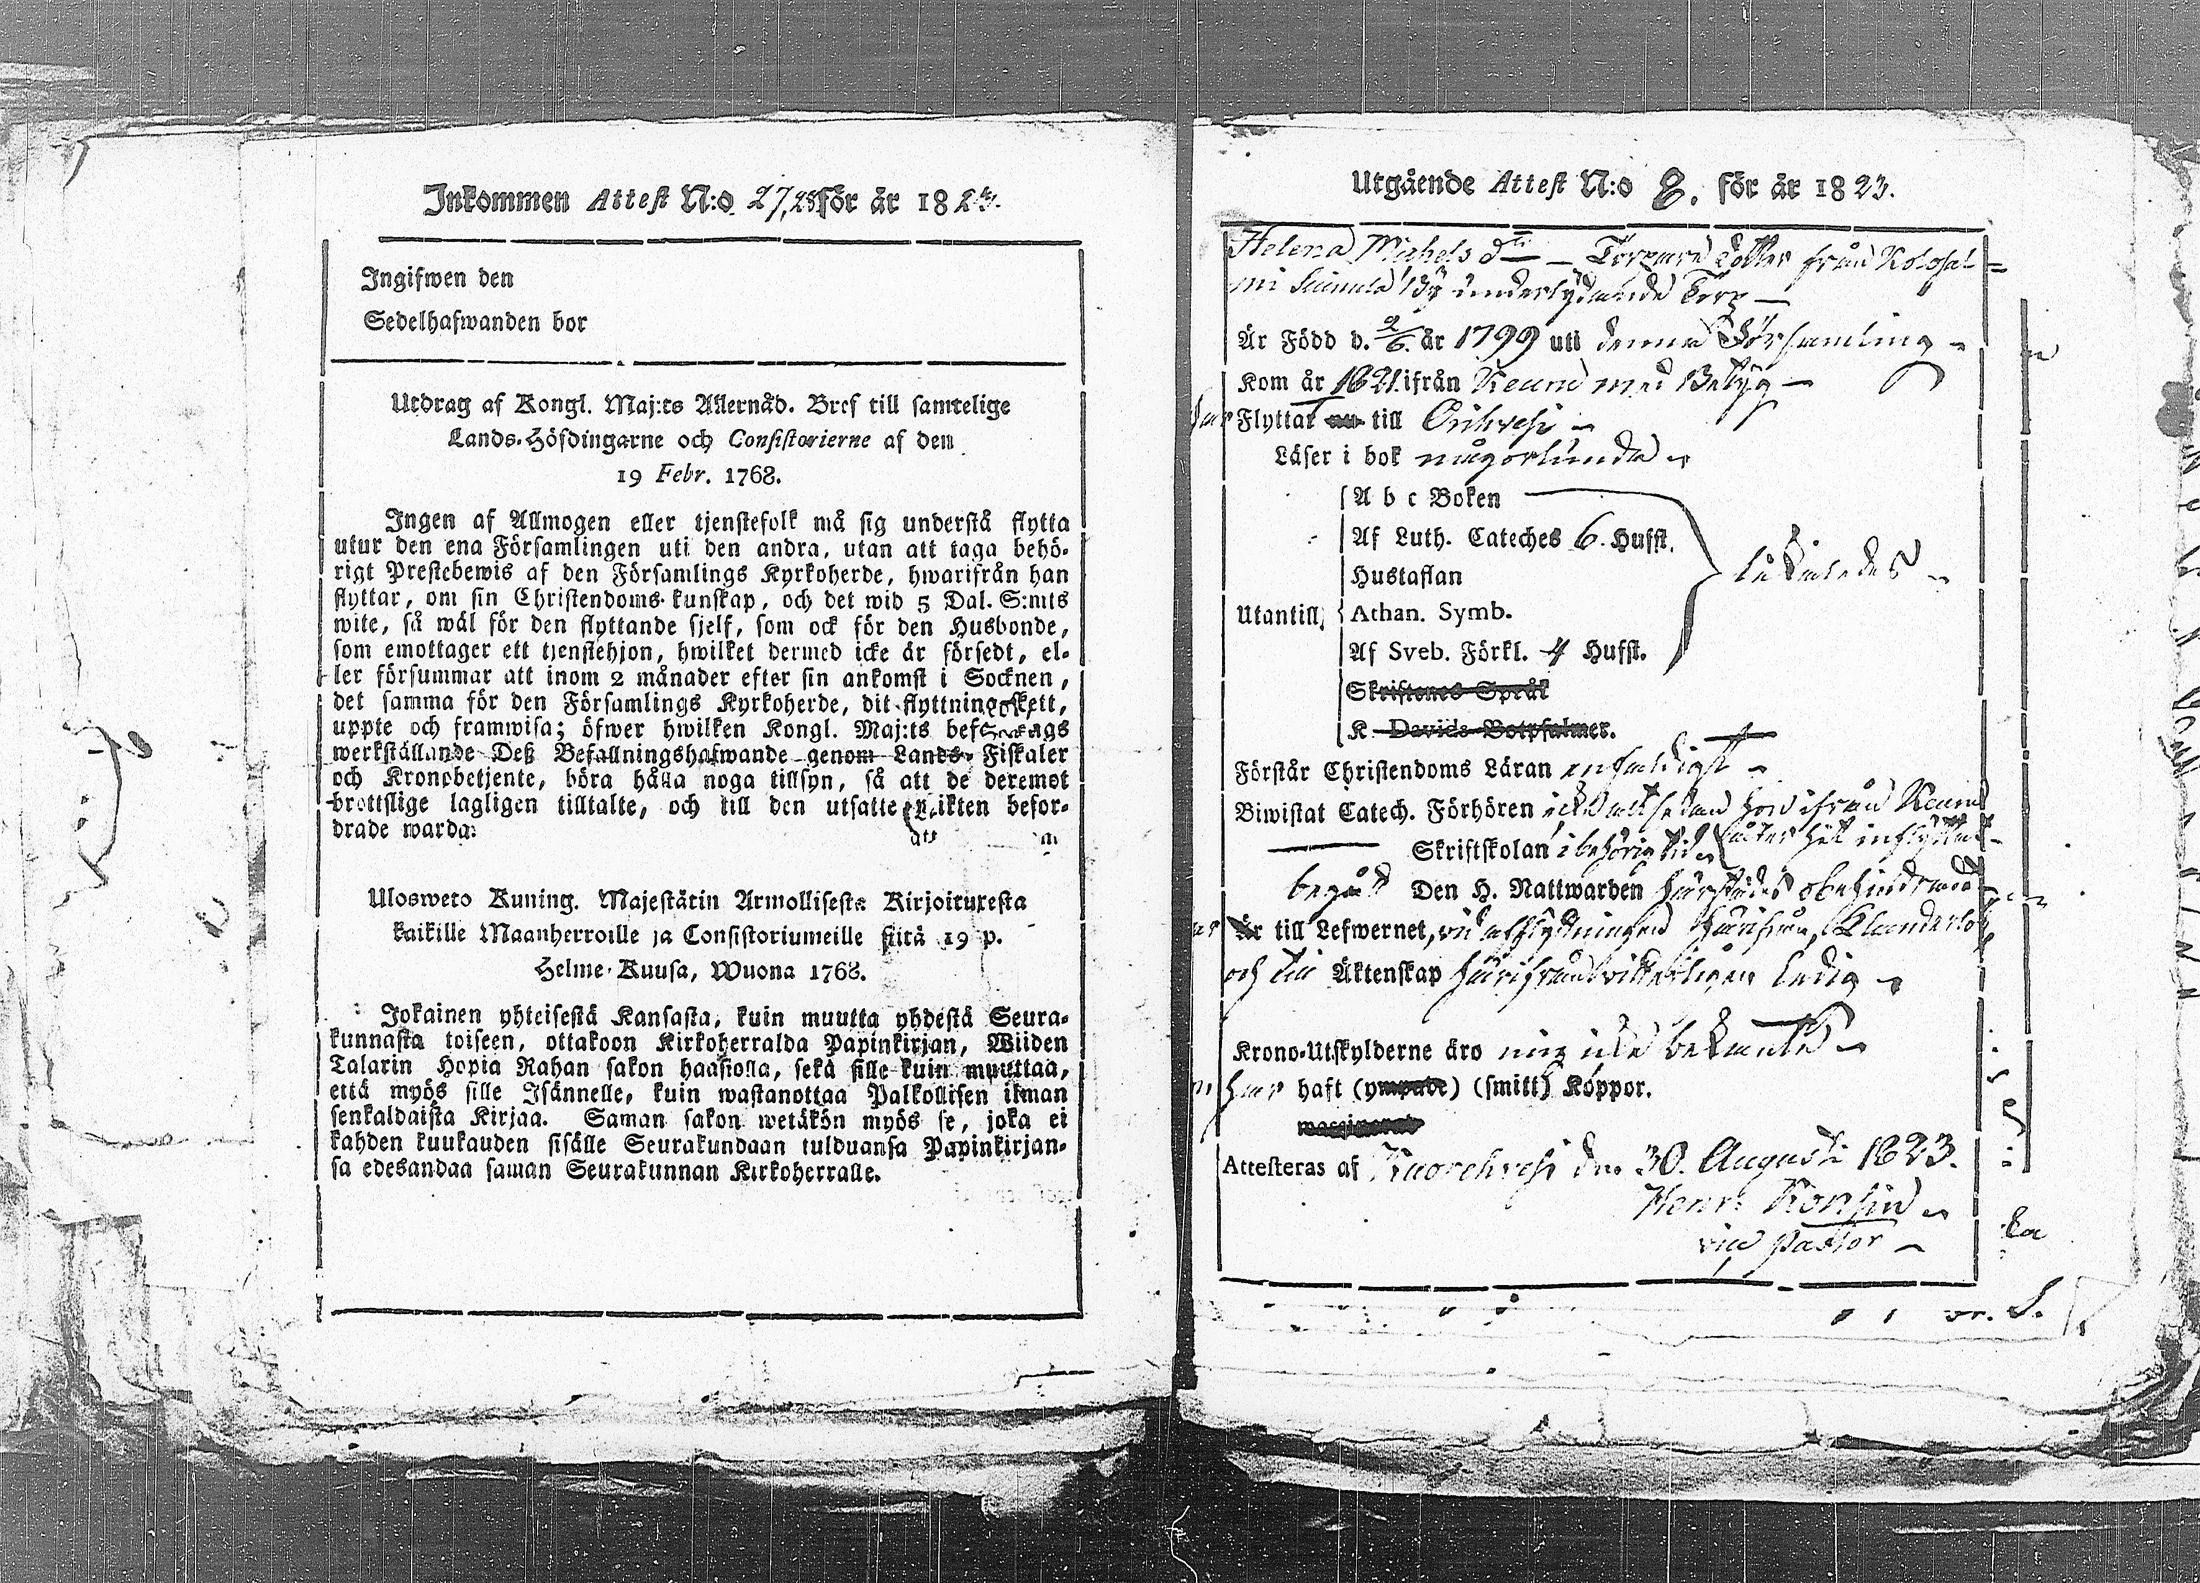 Inkommen Attest N:o 27,28 för år 182
Ingifwen den
Sedelhafwanden bor
Utdrag af Kongl. Maj:ts Allernåd. Bref till samtelige
Lands-Höfdingarne och Consistorierne af den
19 Febr. 1768.
Ingen af Allmogen eller tjenstefolk må sig understå flytta
utur den ena Församlingen uti den andra, utan att taga behö-
rigt Prestebewis af den Församlings Kyrkoherde, hwarifrån han
flyttar, om sin Christendoms-kunskap, och det wid 5 Dal. S:mts
wite, så wäl för den flyttande sjelf, som ock för den Husbonde,
som emottager ett tjenstehjon, hwilket dermed icke är försedt, el-
ler försummar att inom 2 månader efter sin ankomst i Socknen,
det samma för den Församlings Kyrkoherde, dit flyttning skett,
uppte och framwisa; öfwer hwilken Kongl. Maj:ts
werkställande Deß Befallningshafwande genom Lands-Fiskaler
och Kronobetjente, böra hålla noga tillsyn, så att de deremot
brottslige lagligen tilltalte, och till den utsatte befor-
drade warda:
Ulosweto Kuning. Majestätin Armollisesta Kirjoituxesta
kaikille Maanherroille ja Consistoriumeille siitä 19 p.
Helme-Kuusa, Wuona 1768.
Jokainen yhteisestä Kansasta, kuin muutta yhdestä Seura-
kunnasta toiseen, ottakoon Kirkoherralda Papinkirjan, Wiiden
Talarin Hopia Rahan sakon haastolla, sekä sille kuin muuttaa,
että myös sille Isännelle, kuin wastanottaa Palkollisen ilman
senkaldaista Kirjaa. Saman sakon wetäkön myös se, joka ei
kahden kuukauden sisälle Seurakundaan tulduansa Papinkirjan-
sa edesandaa saman Seurakunnan Kirkoherralle.
Utgående Attest N:o 8. för år 1823.
Helena Michels dtr — Torpare dotter från
by underlydande Torp —
Är Född d. 2/6. år 1799 uti denna Församling
Kom år 1821. ifrån Keuru med Betyg —
Flyttat nu till Orihvesi
Läser i bok någorlunda
A b c Boken
Af Luth. Cateches 6. Hufst.
Hustaflan
Utantill, Athan. Symb.
likaledes
Af Sveb. Förkl. 4 Hufst.
Skriftenes Språk
K. Davids Botpsalmer.
Förstår Christendoms Läran enfaldigt
Biwistat Catech. Förhören sedan hon ifrån Keuru
Skriftskolan i behörig tid åter hit inflyttat
begått Den H. Nattwarden härstädes obehindrad
Är till Lefwernet, vid afflyttningen härifrån, Klanderlös
och till Äktenskap härifrån ledig
Krono-Utskylderne äro mig icke bekante
har haft (ympade) (smitt) Koppor.
waccinerad
Attesteras af Kuorehvesi den 30. Augusti 1823.
Henr. Konsin
vice pastor